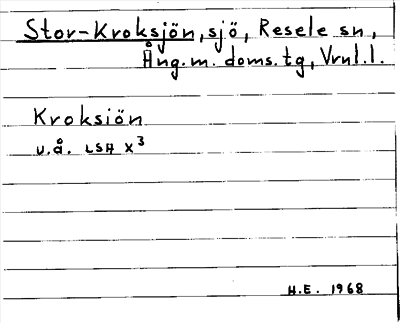 Stor-Kroksjön, sjö, Resele sn,
Ång.m. doms.tg, Vrnl.l.
Kroksiön
u.å. LSA X³
H.E. 1968